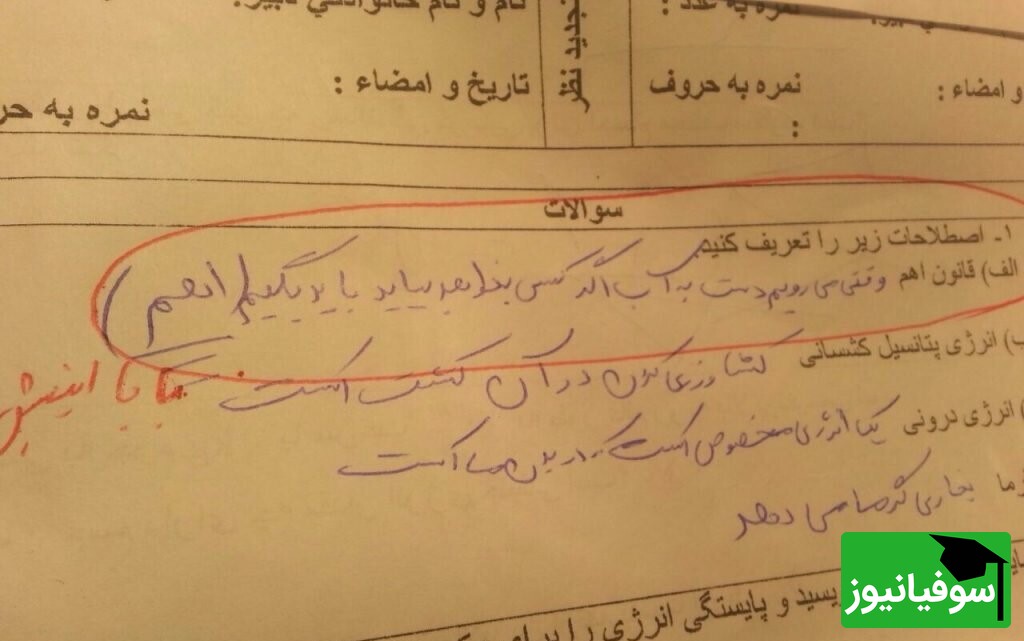 نمره به عدد :
نام و نام خانوادگی دبیر:
و امضاء :
نمره به حروف :
تجدید نظر
تاریخ و امضاء :
نمره به حر
سوالات
۱- اصطلاحات زیر را تعریف کنیم
الف) قانون اهم وقتی می رویم دست به آب اگر کسی بخواهد بیاید باید بگوییم (اهم)
ب) انرژی پتانسیل کشسانی کشاورزی کردن در آن کشت است
بابا اینیشتن
) انرژی درونی یک انرژی مخصوص است که در بدن ما است
رما بخاری گرما می دهد
یسید و پایستگی انرژی را برای
سوفیانیوز